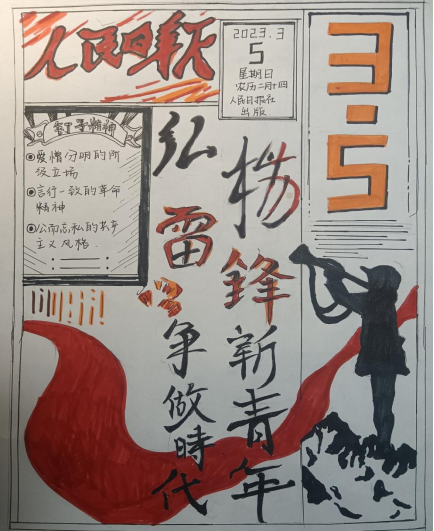 人民日报
2023.3
5
星期日
农历二月十四
人民日报社
出版
3.5
精神
爱憎分明的阶
级立场
言行一致的革命
精神
公而忘私的共产
主义风格.
弘杨
雷锋
争做時代
新青年